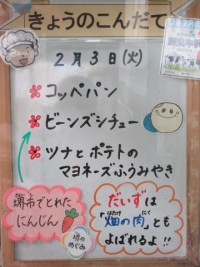 きょうのこんだて
2月3日(火)
コッペパン
ビーンズシチュー
ツナとポテトの
マヨネーズふうみやき
堺市でとれた
にんじん
堺のめぐみ
だいずは
「畑の肉」とも
はたけ にく
よばれるよ!!